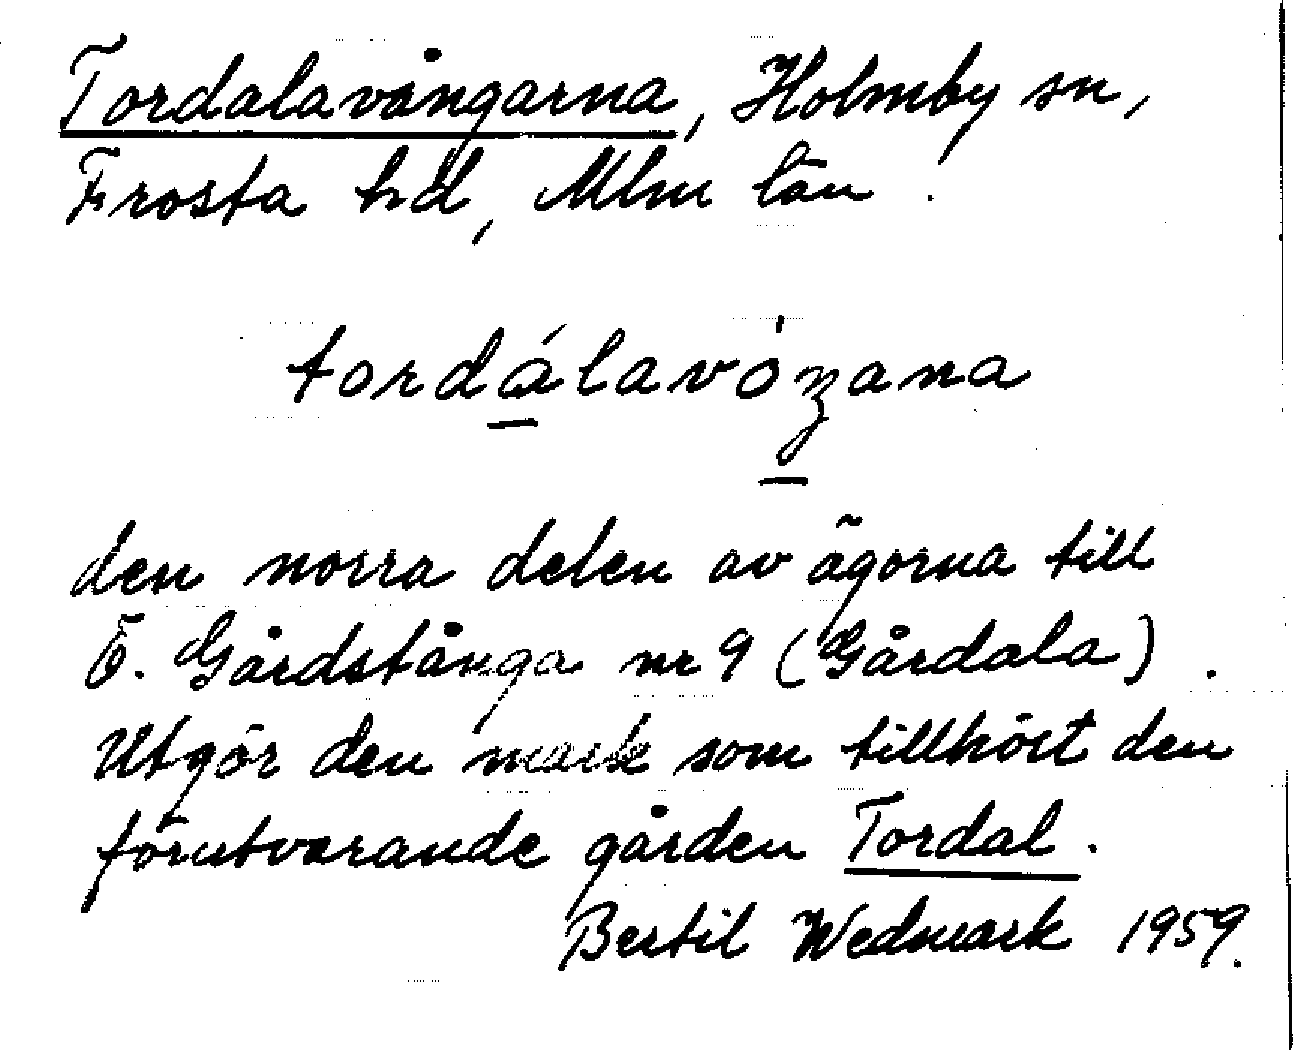 Tordalavångarna, Holmby sn,
Frosta hd, Mlm län.
tordálavóŋana
den norra delen av ägorna till
Ö. Gårdstånga nr 9 (Gårdala).
Utgör den mark som tillhört den
förutvarande gården Tordal.
Bertil Wedmark 1959.